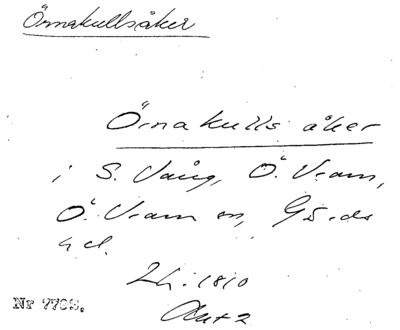 Örnakullsåker
Örnakulls åker
i S. Vång, Ö. Vram,
Ö. Vram sn, Gärds
hd.
Lh. 1810
Akt 2
Nr 7798.